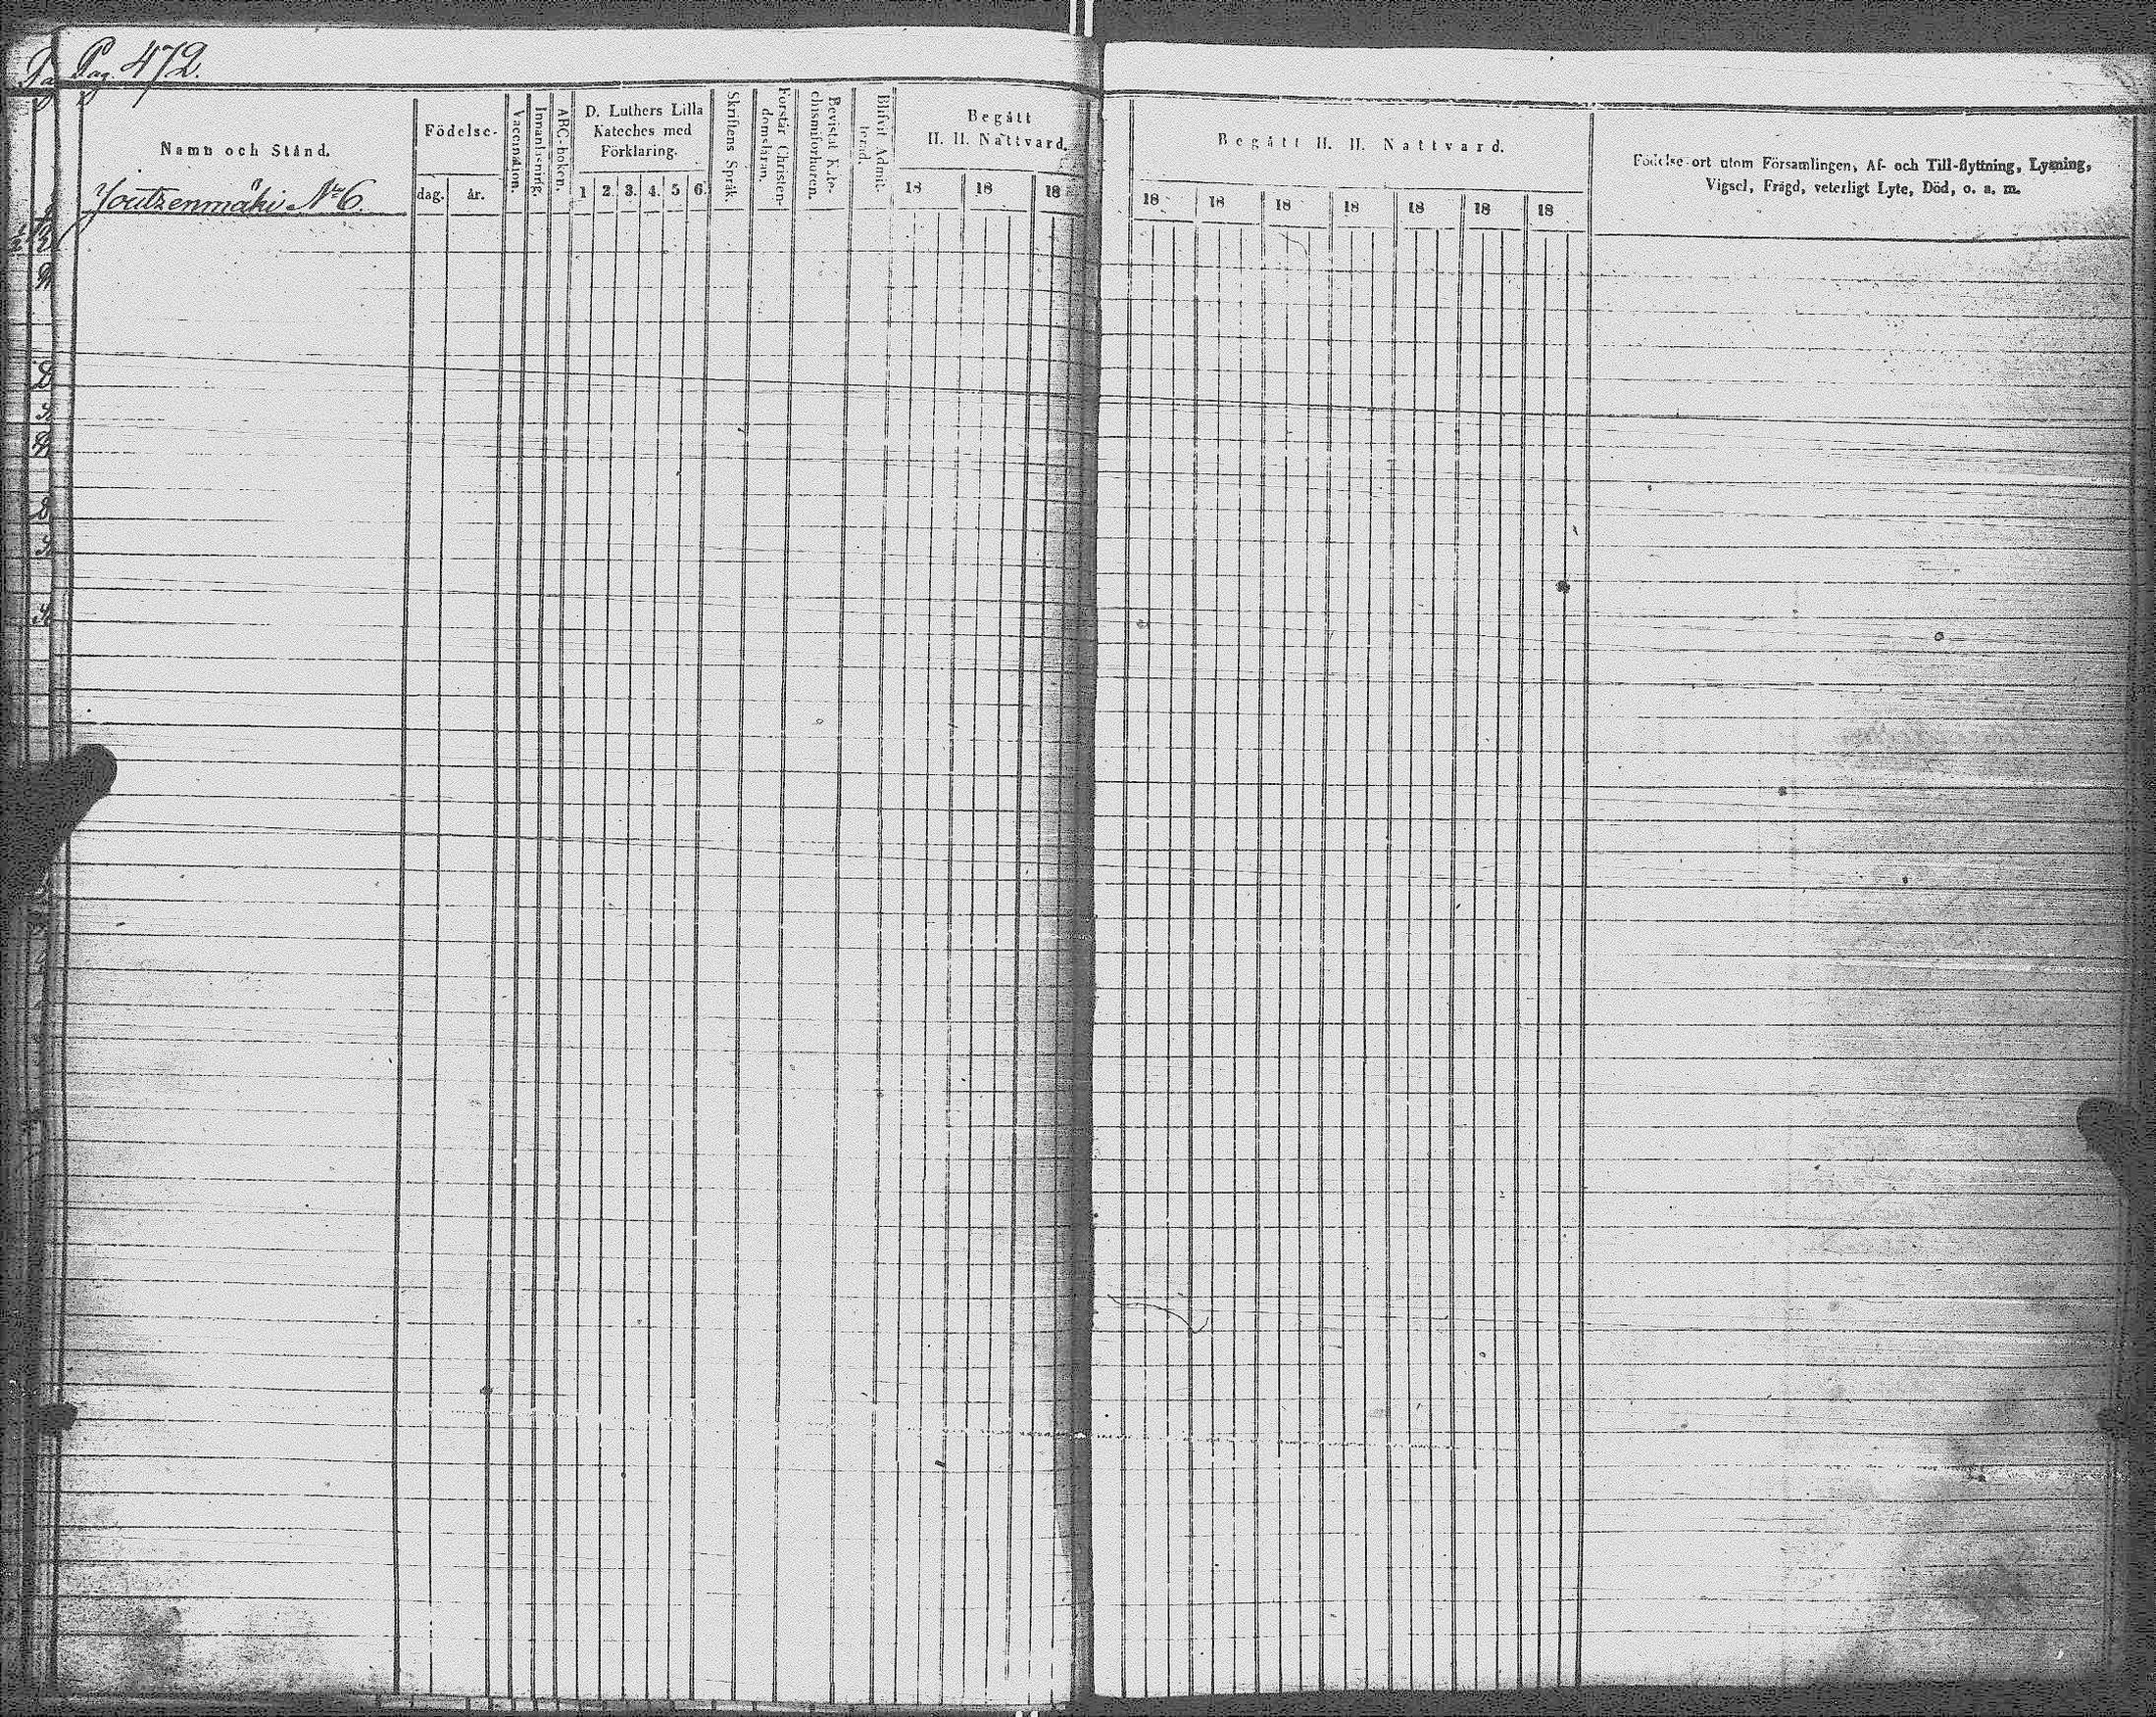 Pag. 472.
Namn och Stånd.
Joutzenmäki No 6.
Födelse-
dag. år.
Vaccination.
Innanläsning.
ABC-boken.
D. Luthers Lilla
Kateches med
Förklaring.
1 2. 3. 4. 5 6.
Skriftens Språk.
Förstår Christen-
domsläran.
Bevistat Kate-
chismiförhören.
Blifvit Admit-
terad.
Begått
H. H. Nattvard.
18 18 18
Begått H. H. Nattvard.
18 18 18 18 18 18 18
Födelse-ort utom Församlingen, Af- och Till-flyttning, Lysning,
Vigsel, Frägd, veterligt Lyte, Död, o. s. m.